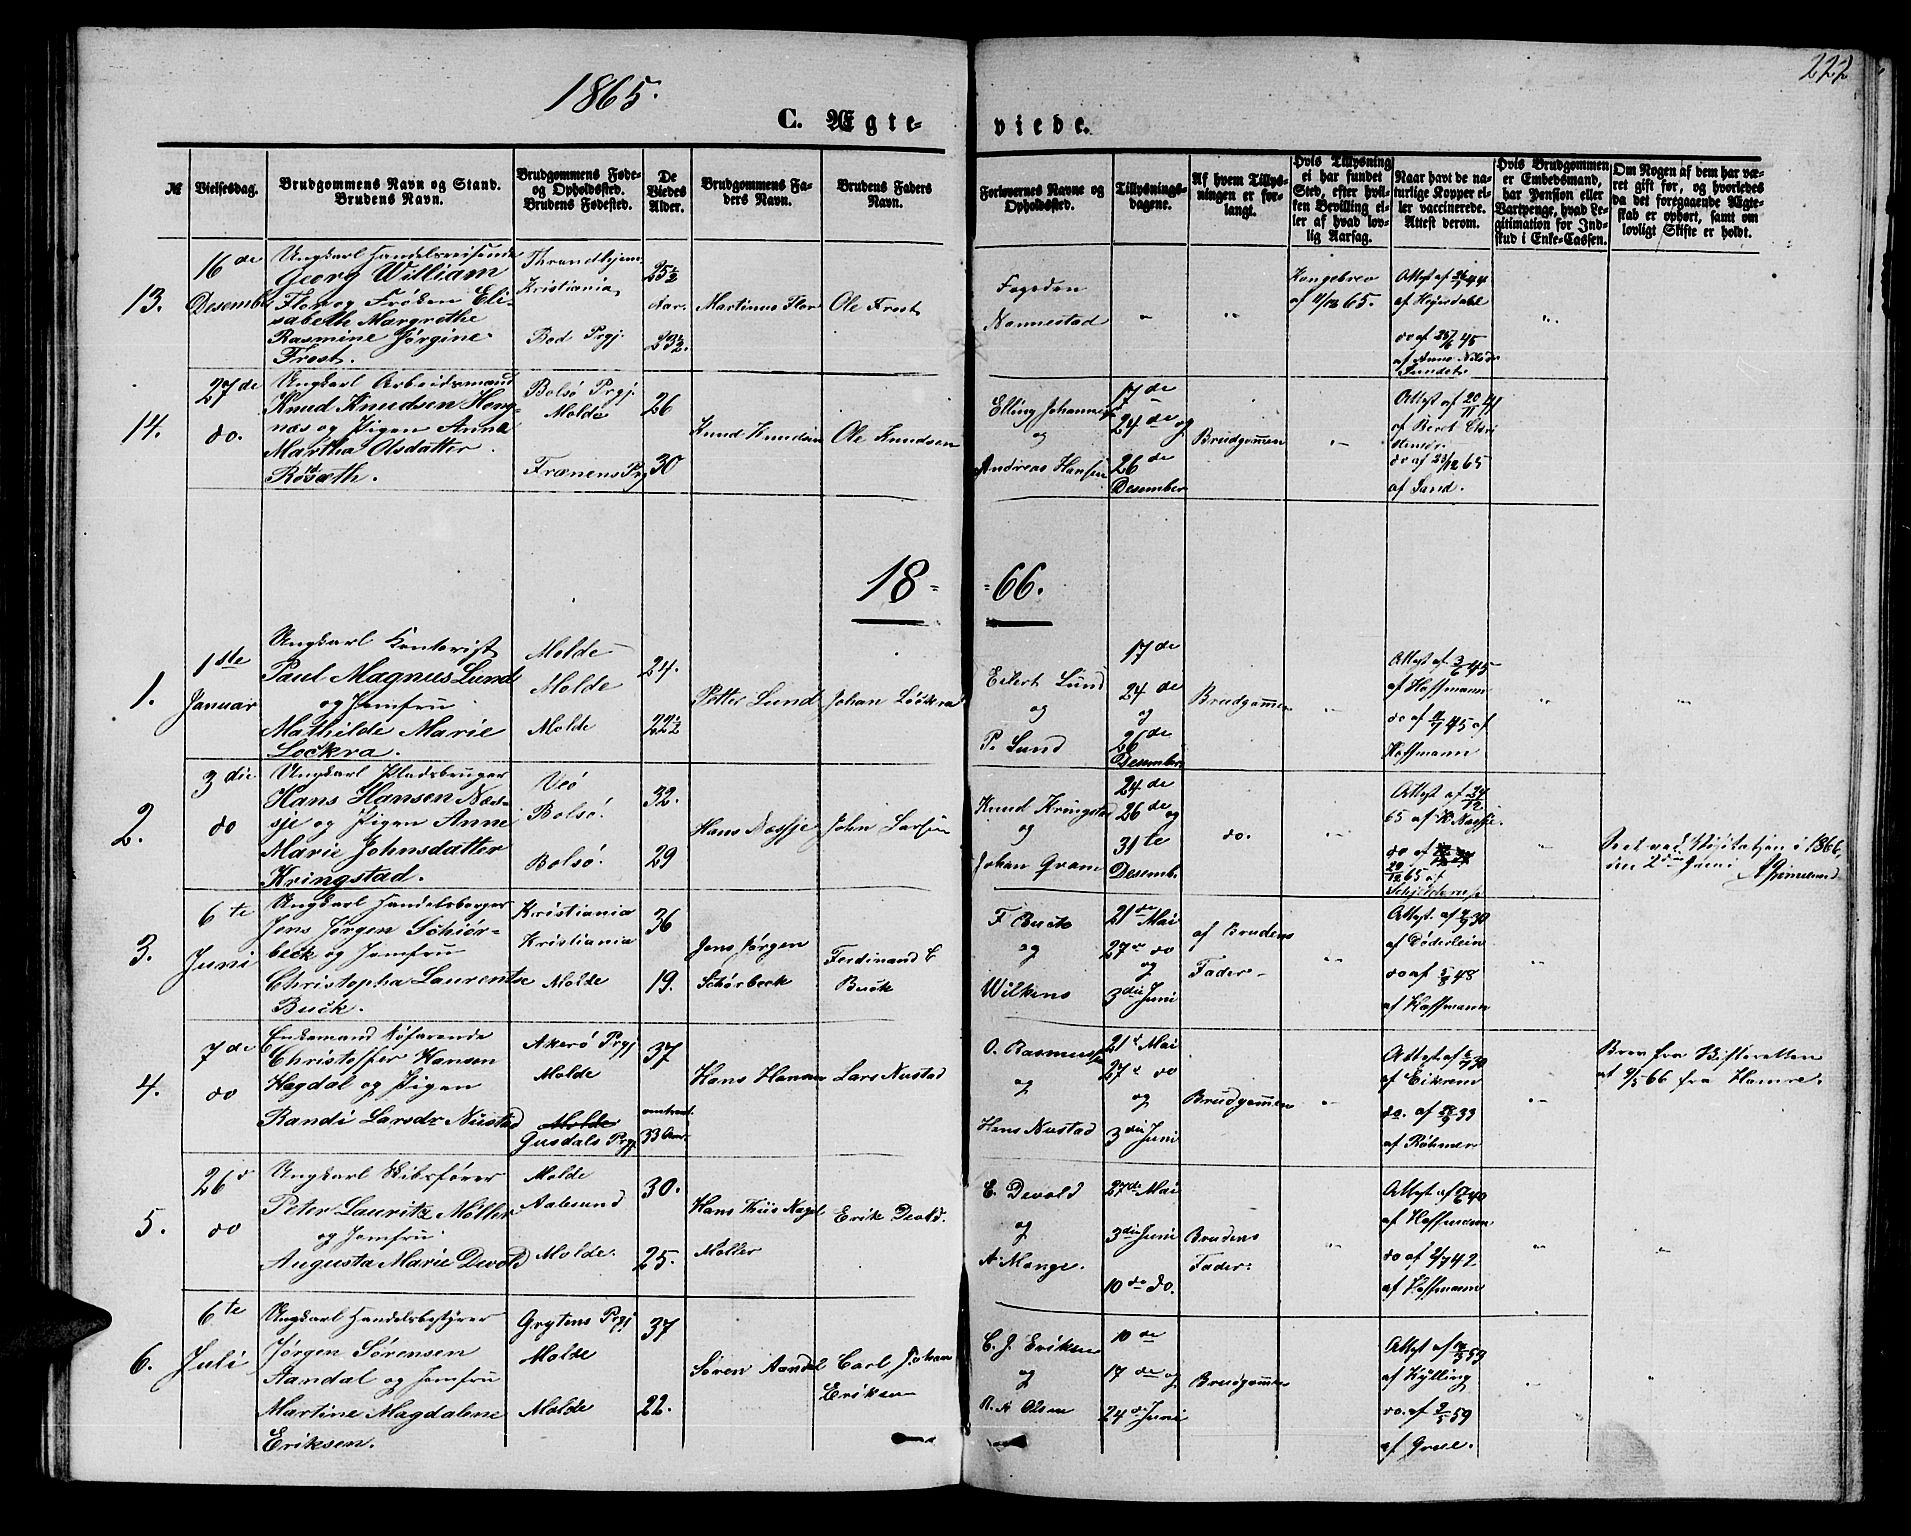 1865.
222
C. Ægte-
viede.
№
Vielsesdag.
Brudgommens Navn og Stand.
Brudens Navn.
Brudgommens Føde-
og Opholdssted.
Brudens Fødested.
De
Viedes
Alder.
Brudgommens Fa-
ders Navn.
Brudens Faders
Navn.
Forlovernes Navne og
Opholdssted.
Tillysnings-
dagene.
Af hvem Tillys-
ningen er for-
langt.
Hvis Tillysning
ei har fundet
Sted, efter hvil-
ken Bevilling el-
ler af hvad lov-
lig Aarsag.
Naar havt de na-
turlige Kopper el-
ler vaccinerede.
Attest derom.
Hvis Brudgommen
er Embedsmand,
har Pension eller
Vartpenge, hvad Le-
gitimation for Ind-
skud i Enke-Cassen.
Om Nogen af dem har væ-
ret gift før, og hvorledes
da det foregaaende Ægte-
skab er ophørt, samt om
lovligt Skifte er holdt.
13.
16de
Desembr
Ungkarl Handelsreisende
Georg William
Flor og Frøken Eli-
sabeth Margrethe
Rasmine Jørgine
Frost.
Throndhjem
Kristiania
Bod Prgj.
25½
Aar.
23½.
Martinus Flor
Ole Frost
Fogeden
Nannestad
"
"
Kongebrev
af 9/12 65.
Attest af 26/7 44
af Heyerdahl
do af 25/6 45
"
14.
27de
do.
Ungkarl Arbeidsmand
Knud Knudsen Hong-
næs og Pigen Anna
Martha Olsdatter
Røsæth.
Bolsø Prgj.
Molde
Frænens Prgj
26
30
Knud Knudsen
Ole Knudsen
Elling Johannes
og
Andreas Hansen
17de
24de og
26de
Desember
Brudgommen
"
Attest af 20/11 41
af Beret Chri
do af 23/12 65
af Sand.
18-
-66.
1.
1ste
Januar
Ungkarl Kontorist
Paul Magnus Lund
og Jomfru
Mathilde Marie
Lockra.
Molde
Molde
Molde
24.
22½
Petter Lund
Johan Lockra
Eilert Lund
og
P. Lund
17de
24de
og
26de
Desember
Brudgommen
"
Attest af 3/6 45
af Hoffmann
do af 9/7 45 af
Hoffmann
"
"
2.
3die
do
Ungkarl Pladsbruger
Hans Hansen Næs-
sje og Pigen Anne
Marie Johnsdatter
Kringstad.
Veø
Bolsø.
Bolsø.
32.
29
Hans Næssje
John Larsen
Knud Kringstad
og
Johan Grane
24de
26de og
31te
Desemb.
do.
"
Attest af 24/12
65 af K. Næssje.
do af
20/12 65 af
"
Seet ved Visitatsen i 1866,
den 2den Juni
3.
6te
Juni
Ungkarl Handelsborger
Jens Jørgen Schiør-
beck og Jomfru
Christopha Laurentse
Buck.
Kristiania
Kristiania
Molde
36
19.
Jens Jørgen
Schørbeck
Ferdinand C
Buck
F Buck
og
Wilkens
21de Mai
27de do
og
3die Juni
af Brudens
Fader
"
Attest. af 2/9 30
af Døderlein
do af 5/8 48
af Hoffmann
"
4.
7de
do
Enkemand Søfarende
Christoffer Hansen
Hagdal og Pigen
Randi Larsdr Nustad
Akerø Prgj
Molde
Molde
Gusdals Prgj.
37
omtrent
33 Aar.
Hans Hansen
Lars Nustad
O. Rasmussen
og
Hans Nustad
21d Mai
27d do
og
3die Juni
Brudgommen
"
af Eikrem
do. af 28/9 33
af Røhmer
"
Brev fra Skifteretten
af 9/5 66 fra Hamre.
5.
26d
do
Ungkarl Skibsfører
Peter Lauritz Møller
og Jomfru
Augusta Marie Devold
Molde
Aalesund
Molde.
30.
25.
Hans Thiis Nagel
Møller
Erik Devold.
E. Devold
og
A. Mange.
27de Mai
3die Juni
10de do.
Brudens
Fader.
"
Attest af 7/6 40
af Hoffmann
do af 2/7 42
af Hoffmann
"
"
6.
6te
Juli
Ungkarl Handelsbestyrer
Jørgen Sørensen
Aandal og Jomfru
Martine Magdalene
Eriksen.
Grytens Prgj
Molde
Molde
37
22.
Søren Aandal
Carl Johan
Eriksen
C. J. Eriksen
og
R. A Olsen
10de
17de og
24de Juni
Brudgommen
af Kylling
do. af 2/5 59
af Grue.
"
"